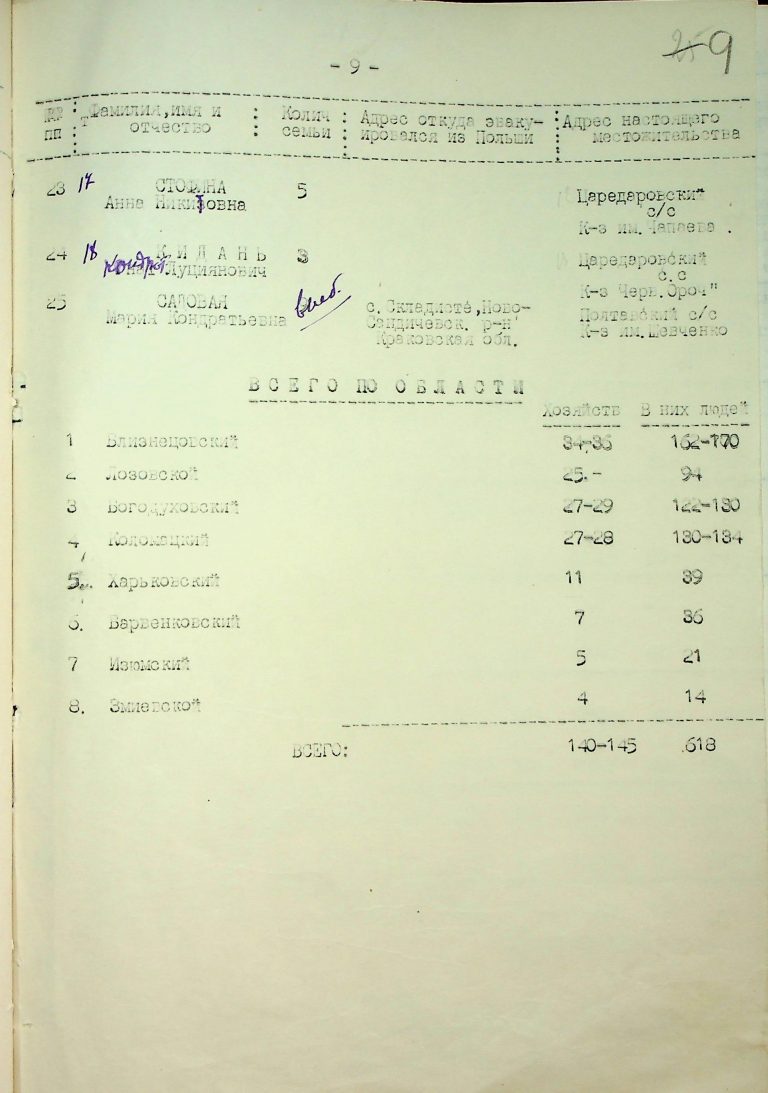 25 9
- 9 -
№№ пп : Фамилия, имя и отчество : Колич семьи : Адрес откуда эваку-ировался из Польши : Адрес настоящего местожительства
23 17 СТОФИНА 5 Царедаровский
Анна Никитовна с/с
К-з им.Чапаева .
24 18 К И Д А Н Ь 3 Царедаровский
Кондрат Луциянович с.с
К-з Черв.Ороч"
25 САДОВАЯ с.Складисте,Ново- Полтавский с/с
Мария Кондратьевна Сандичевск. р-н К-з им.Шевченко
Краковская обл.
В С Е Г О ПО О Б Л А С Т И
Хозяйств В них людей
1 Близнецовский 34-36 162-170
2 Лозовской 25.- 94
3 Богодуховский 27-29 122-130
4 Коломацкий 27-28 130-134
5 Харьковский 11 39
6. Барвенковский 7 36
7 Изюмский 5 21
8. Змиевской 4 14
ВСЕГО: 140-145 618